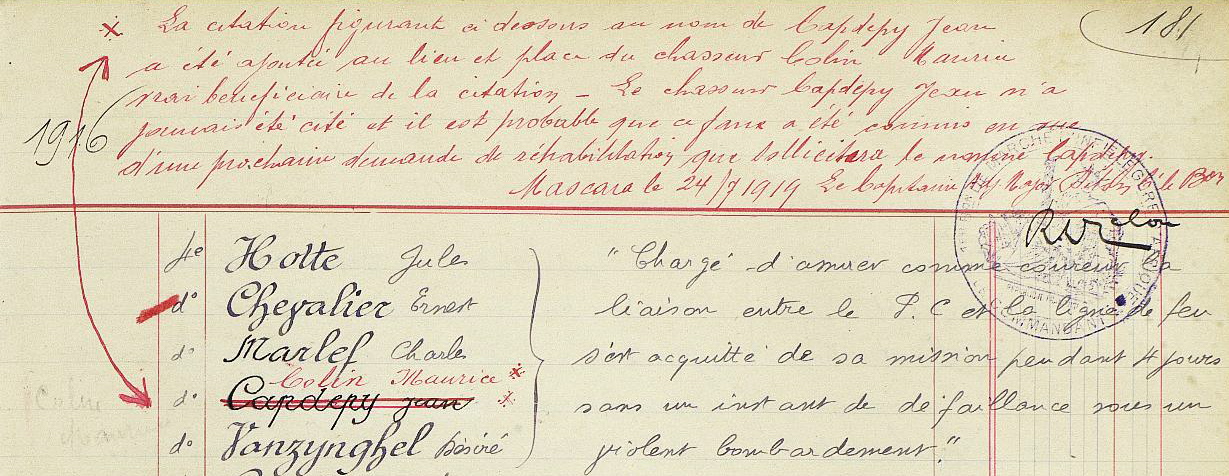 181
x La citation figurant ci dessous au nom de Capdepy Jean
a été ajoutée au lieu et place du chasseur Colin Maurice
vrai bénéficiaire de la citation - Le chasseur Capdepy Jean n'a
1916
jamais été cité et il est probable que ce faux a été commis en vue
d'une prochaine demande de réhabilitation que sollicitera le nommé Capdepy.
Mascara le 24/7/1919 Le Capitaine Major le Bon
1e Hotte Jules "Chargé d'assurer comme coureur la
do Chevalier Ernest liaison entre le P.C et la ligne de feu
do Marlef Charles s'est acquitté de sa mission pendant 4 jours
Colin Maurice x
do Capdepy Jean x sans un instant de défaillance sous un
do Vanzynghel Désiré violent bombardement."
Colin
Maurice